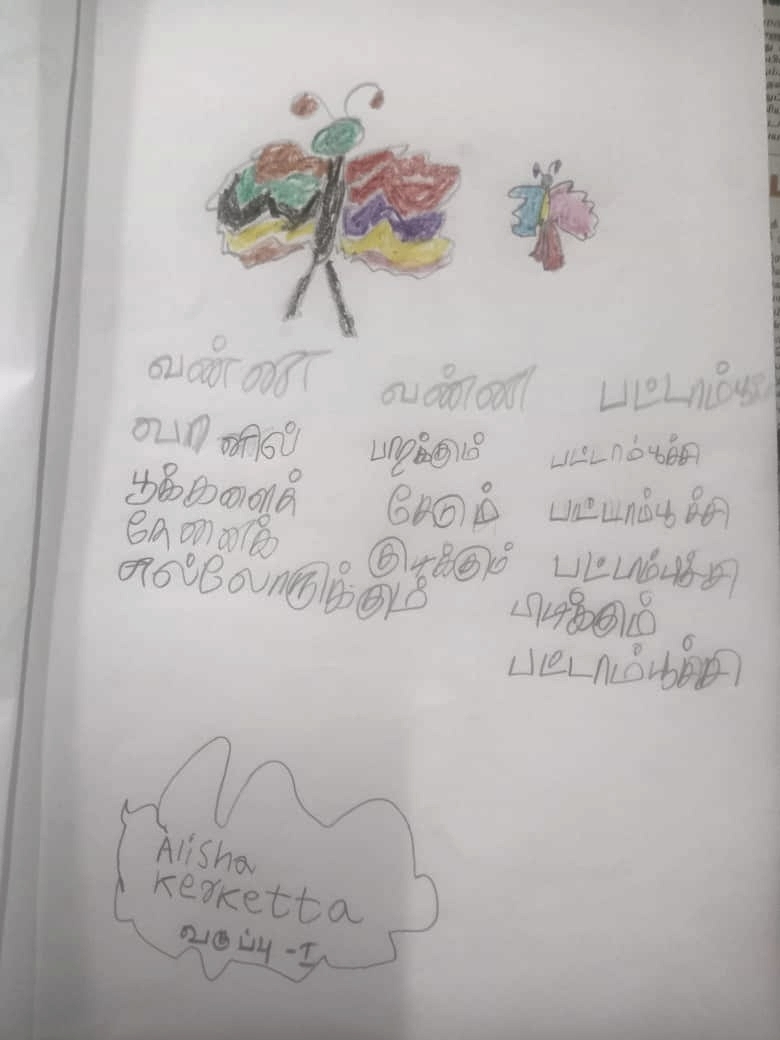 வண்ண வண்ண பட்டாம்பூச்சி
வானில் பறக்கும் பட்டாம்பூச்சி
பூக்களைத் தேடும் பட்டாம்பூச்சி
தேனைக் குடிக்கும் பட்டாம்பூச்சி
எல்லோருக்கும் பிடிக்கும்
பட்டாம்பூச்சி
Alisha
Kerketta
வகுப்பு - I